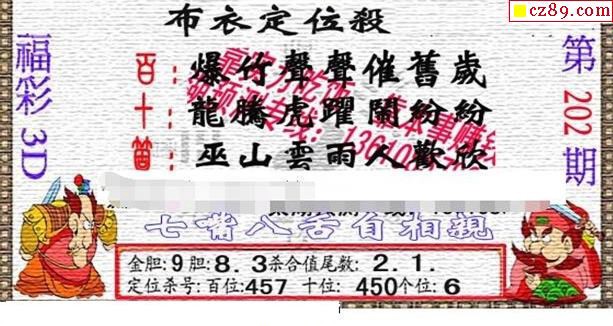 cz89.com
布衣定位殺
福彩3D
第202期
百:爆竹聲聲催舊歲
十:龍騰虎躍鬧紛紛
箇:巫山雲雨人歡欣
七嘴八舌自相親
金胆:9胆:8.3杀合值尾数:2.1.
定位杀号:百位:457 十位:450个位:6